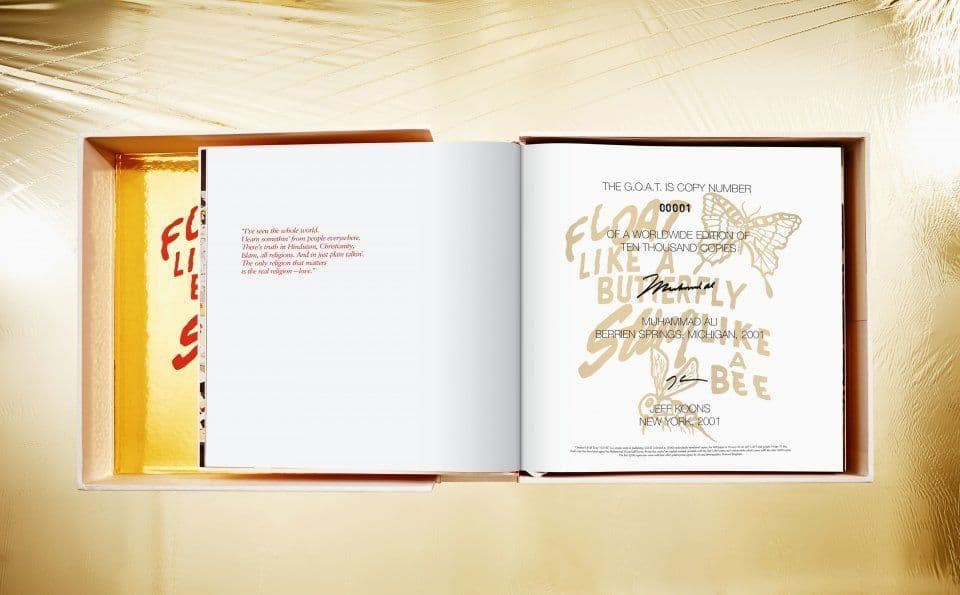 FLOAT
LIKE
"I've seen the whole world.
I learn somethin' from people everywhere.
There's truth in Hinduism, Christianity,
Islam, all religions. And in just plain talkin'.
The only religion that matters
is the real religion—love."
THE G.O.A.T. IS COPY NUMBER
00001
OF A WORLDWIDE EDITION OF
TEN THOUSAND COPIES
FLOAT
LIKE A
BUTTERFLY
Sting LIKE
A
BEE
Muhammad Ali
MUHAMMAD ALI
BERRIEN SPRINGS, MICHIGAN, 2001
JEFF KOONS
NEW YORK, 2001